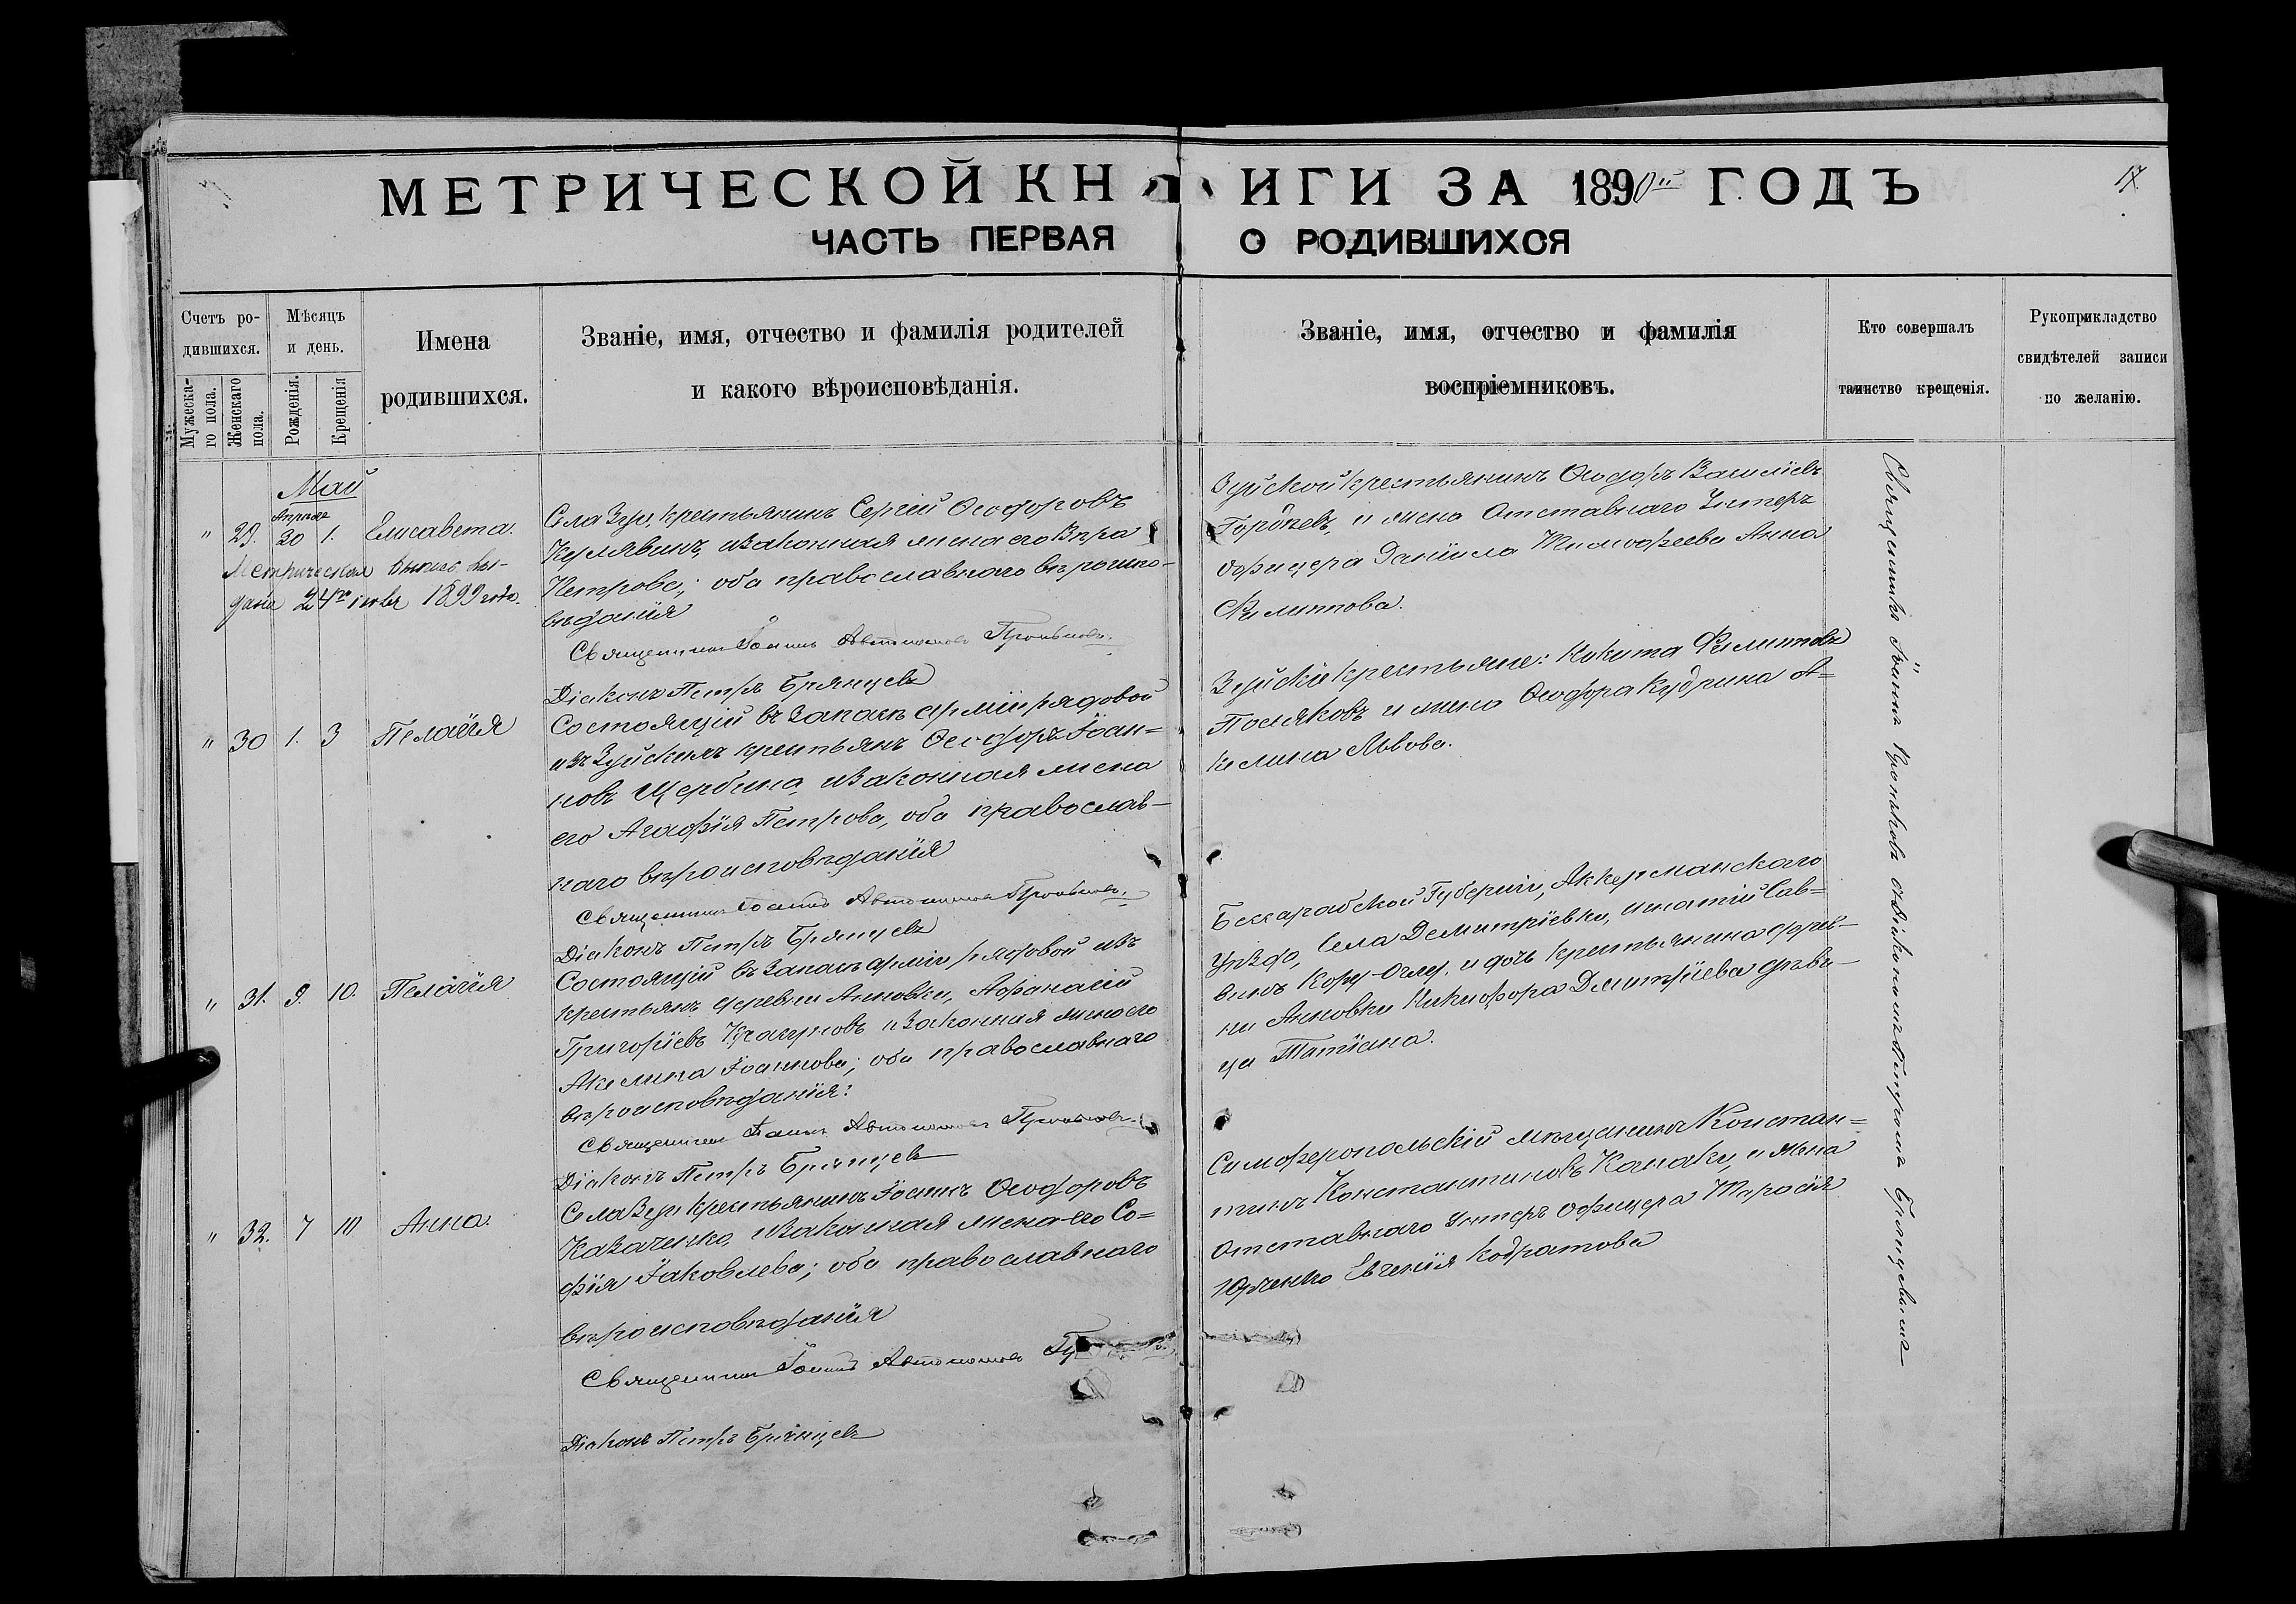 МЕТРИЧЕСКОЙ КНИГИ ЗА 1890й ГОДЪ
17
ЧАСТЬ ПЕРВАЯ О РОДИВШИХСЯ
Счетъ ро-
дившихся.
Мужеска-
го пола.
Женскаго
пола.
Мѣсяцъ
и день.
Рожденія.
Крещенія
Имена
родившихся.
Званіе, имя, отчество и фамилія родителей
и какого вѣроисповѣданія.
Званіе, имя, отчество и фамилія
воспріемниковъ.
Кто совершалъ
таинство крещенія.
Рукоприкладство
свидѣтелей записи
по желанію.
Май
Апрѣля
" 29. 30 1. Елисавета.
Метрическая выпись вы-
дана 24го 1899 года.
Села Зуи, крестьянинъ Сергій Ѳеодоровъ
Кулявинъ, и законная жена его Вѣра
Петрова; оба православнаго вѣроиспо-
вѣданія
Священникъ Іоаннъ Автономовъ
Діаконъ Петръ Брянцевъ
Зуйской крестьянинъ Ѳеодоръ Василіевъ
Горбневъ, и жена Отставнаго Унтеръ
офицера Даніила Тимофеева Анна
Филиппова.
" 30 1. 3 Пелагія
Состоящій въ запасѣ арміи рядовой
изъ Зуйскихъ крестьянъ Ѳеодоръ Іоан=
новъ Щербина, и законная жена
его Агафія Петрова, оба православ-
наго вѣроисповѣданія
Священникъ Іоаннъ Автономовъ
Діаконъ Петръ Брянцевъ
Зуйскіе крестьяне: Никита Филипповъ
Поляковъ и жена Ѳеодора Кудрина А=
келина Львова.
" 31. 9. 10. Пелагія
Состоящій въ запасѣ арміи рядовой изъ
крестьянъ деревни Анновки, Афанасій
Григоріевъ и законная жена его
Акелина Іоаннова; оба православнаго
вѣроисповѣданія:
Священникъ Іоаннъ Автономовъ
Діаконъ Петръ Брянцевъ
Бессарабской Губерніи, Аккерманскаго
Уѣзда, Села Демитріевки, Игнатій Сав=
винъ Кору-Оглу, и дочь крестьянина дерев-
ни Анновки Никифора Дмитріева дѣви-
ца Татіана.
" 32. 7 10 Анна.
Села Зуи крестьянинъ Іоаннъ Ѳеодоровъ
Казаченко, и законная жена его Со=
фія Іаковлева; оба православнаго
вѣроисповѣданія
Священникъ Іоаннъ Автономовъ
Діаконъ Петръ Брянцевъ
Симферопольскій мѣщанинъ Констан=
тинъ Константиновъ Канаки, и жена
отставнаго унтеръ офицера Тарасія
Юрченко Евгенія Кодратова
Священникъ Іоаннъ съ діакономъ Петромъ Брянцевымъ